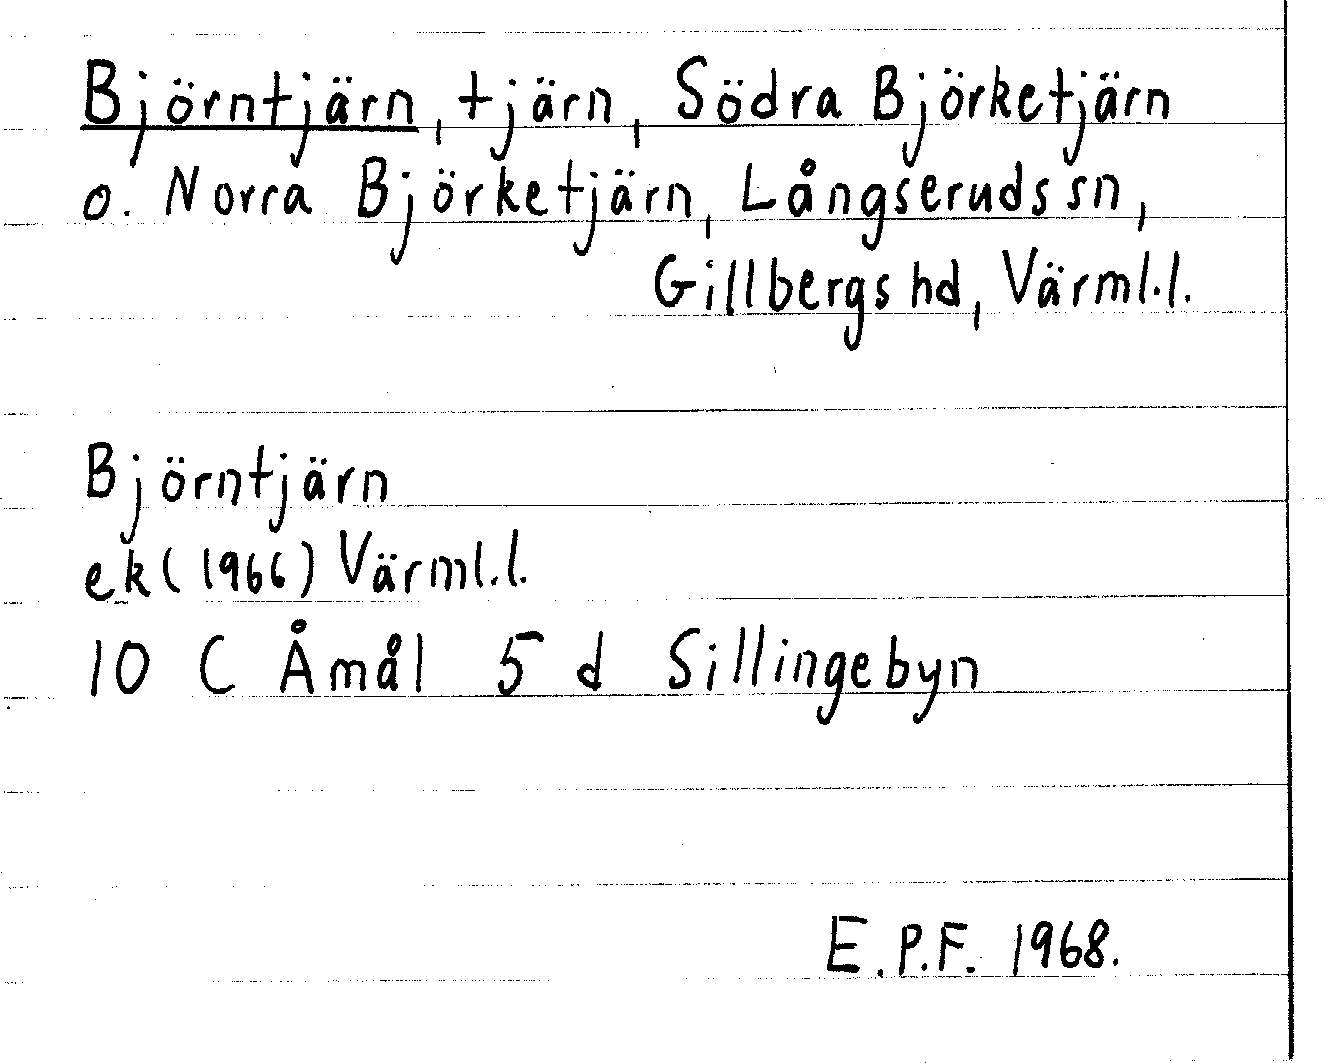 Björntjärn, tjärn, Södra Björketjärn
o. Norra Björketjärn, Långseruds sn,
Gillbergs hd, Värml.l.
Björntjärn
ek (1966) Värml.l.
10 C Åmål 5 d Sillingebyn
E.P.F. 1968.